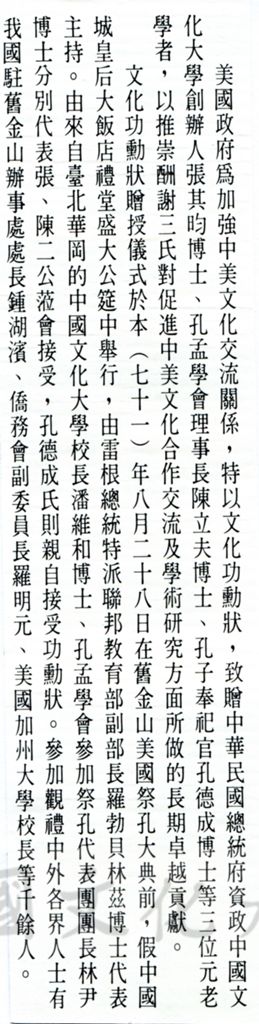 美國政府爲加強中美文化交流關係，特以文化功勳狀，致贈中華民國總統府資政中國文
化大學創辦人張其昀博士、孔孟學會理事長陳立夫博士、孔子奉祀官孔德成博士等三位元老
學者，以推崇酬謝三氏對促進中美文化合作交流及學術研究方面所做的長期卓越貢獻。
文化功勳狀贈授儀式於本（七十一）年八月二十八日在舊金山美國祭孔大典前，假中國
城皇后大飯店禮堂盛大公筵中舉行，由雷根總統特派聯邦教育部副部長羅勃貝林茲博士代表
主持。由來自臺北華岡的中國文化大學校長潘維和博士、孔孟學會參加祭孔代表團團長林尹
博士分別代表張、陳二公蒞會接受，孔德成氏則親自接受功勳狀。參加觀禮中外各界人士有
我國駐舊金山辦事處處長鍾湖濱、僑務會副委員長羅明元、美國加州大學校長等千餘人。
國文化大